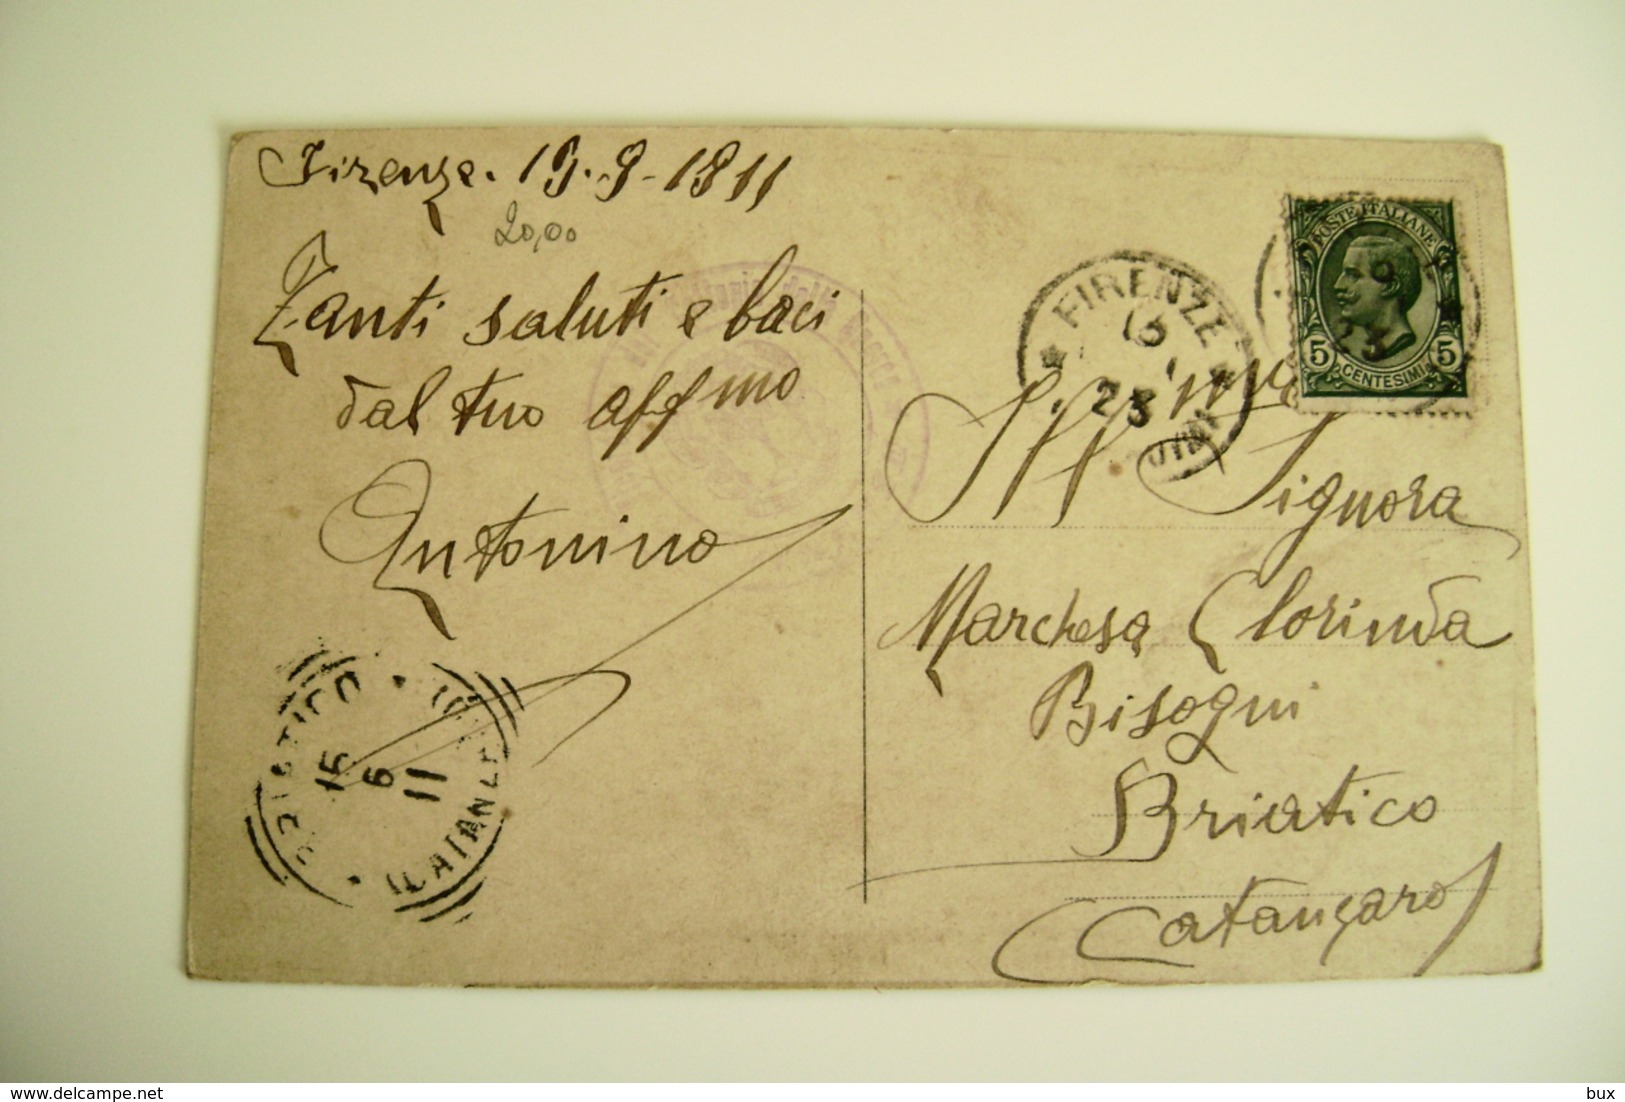 Firenze. 19.9-1911
20,00
Tanti saluti e baci
dal tuo affmo
Antonino
FIRENZE
23
POSTE ITALIANE
5 CENTESIMI 5
Signora
Marchesa Clorinda
Bisogni
Briatico
Catanzaro
15
6
11
delcampe.net
bux